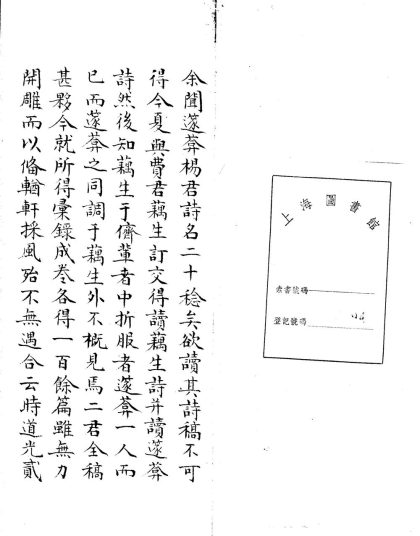 余聞蓬莽楊君詩名二十稔矣欲讀其詩稿不可
得今夏與費君藕生訂交得讀藕生詩并讀蓬莽
詩然後知藕生于儕輩者中折服者蓬莽一人而
已而蓬莽之同調于藕生外不概見焉二君全稿
甚夥今就所得彙錄成卷各得一百餘篇雖無力
開雕而以偹輶軒採風殆不無遇合云時道光貳
上海圖書館
索書號碼
登記號碼